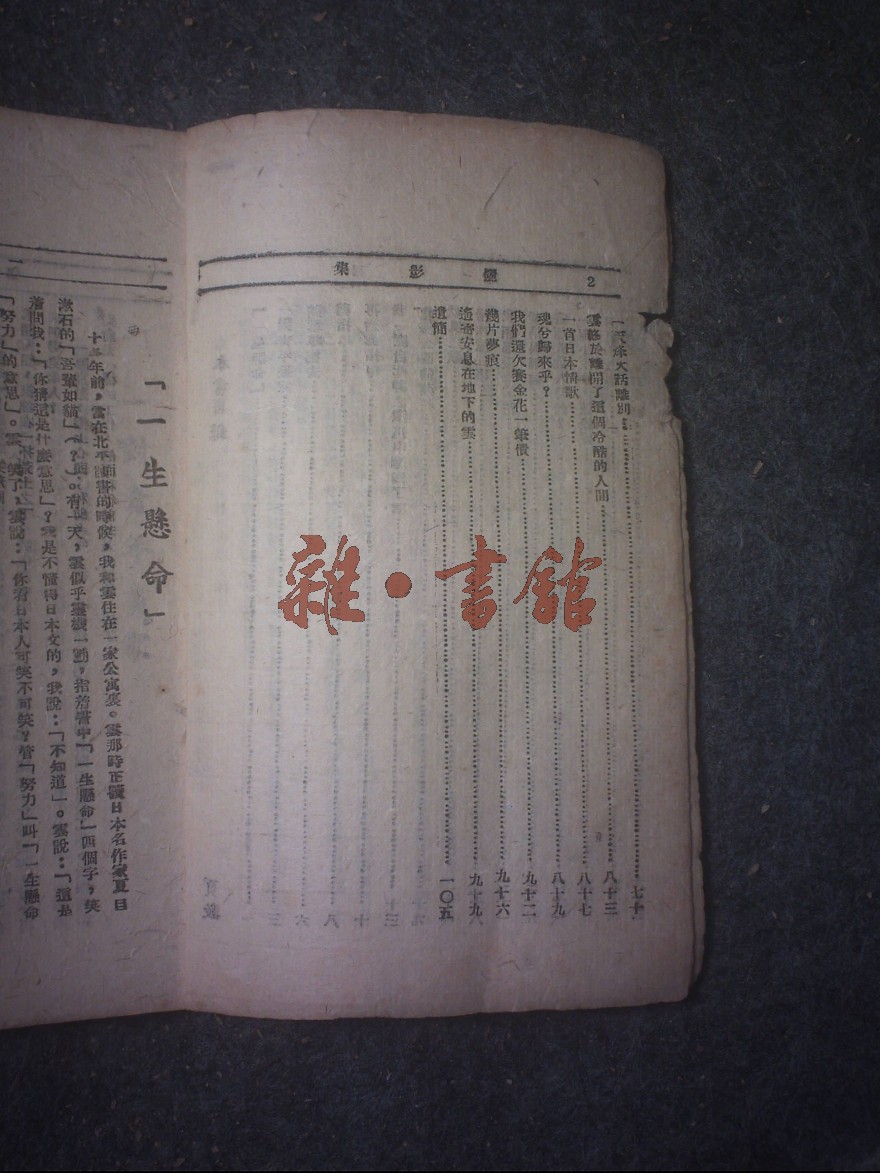 2
影集
話離別
雲終於離開了這個冷酷的人間 八十三
一首日本情歌 八十七
魂兮歸來乎? 八十九
我們還欠賽金花一筆債 九十二
幾片夢痕 九十六
遙寄安息在地下的雲 九十九
遺簡 一〇五
雜・書館
「一生懸命」
年前,雲在北平讀書的時候,我和雲住在一家公寓裏。雲那時正讀日本名作家夏目
漱石的「吾輩如貓」(?)。有一天,雲似乎靈機一動,指着書中「一生懸命」四個字,笑
着問我:「你猜這是什麼意思」?我是不懂得日本文的,我說:「不知道」。雲說:「這是
「努力」的意思」。雲笑了,雲說:「你看日本人可笑不可笑?管「努力」叫「一生懸命